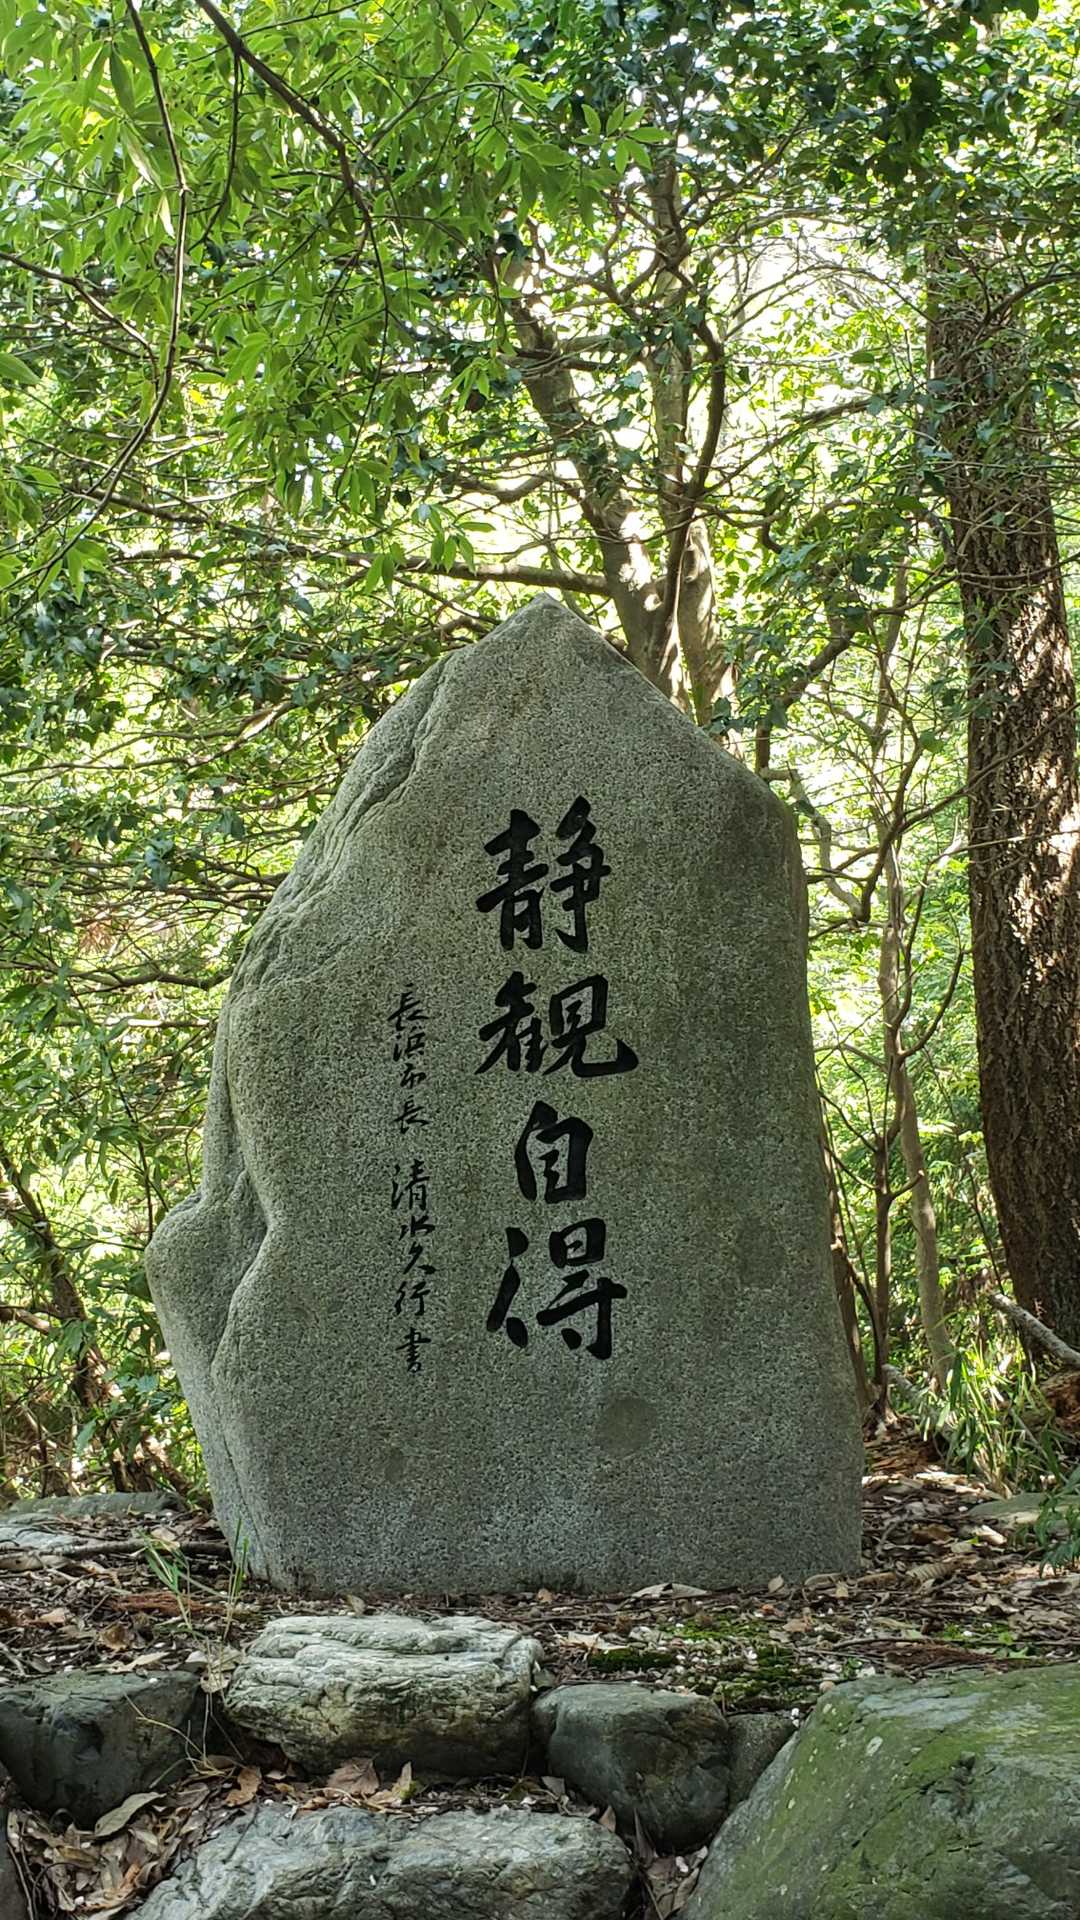 静観自得
長浜市長 清水久行書